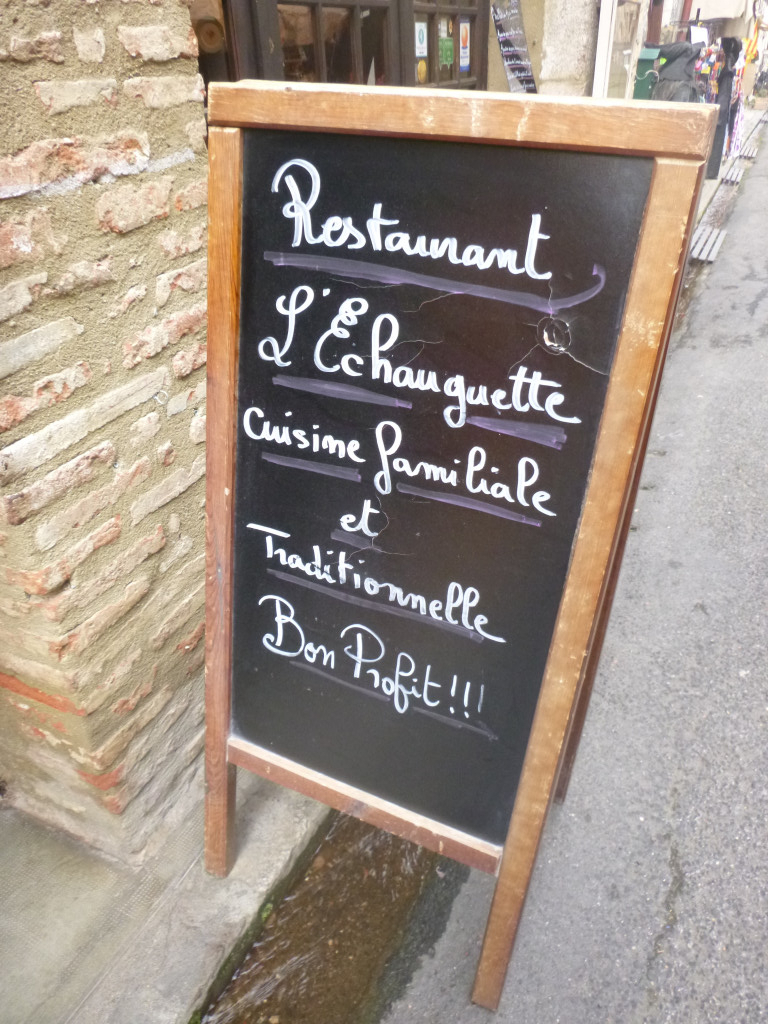 Restaurant
L'Échauguette
Cuisine familiale
et
Traditionnelle
Bon Profit!!!